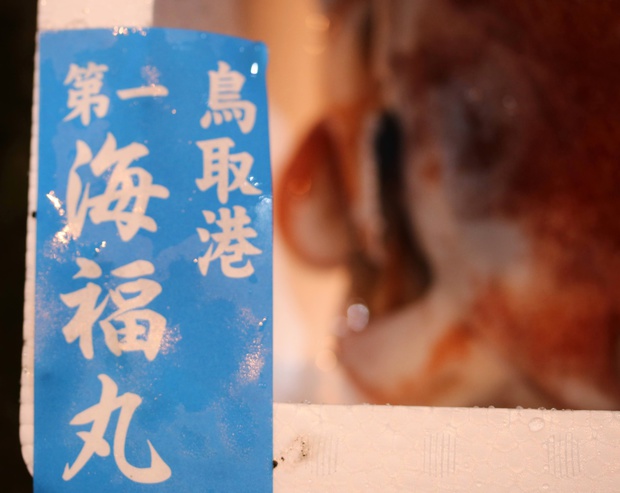 鳥取港
第一海福丸